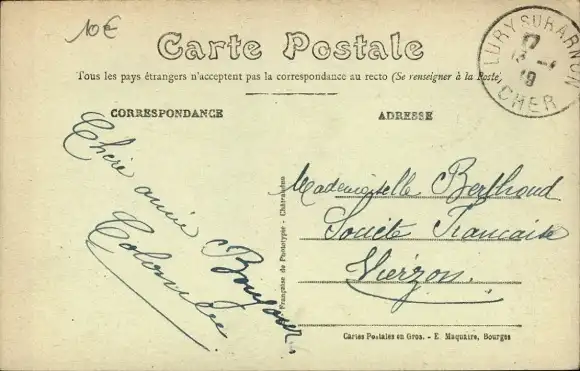 10€
Carte Postale
Tous les pays étrangers n'acceptent pas la correspondance au recto (Se renseigner à la Poste)
LURY SUR ARNON
CHER
CORRESPONDANCE
ADRESSE
Chère amie
Bonjour.
Mademoiselle Berthoud
Société Francaise
Vierzon.
Française de Phototypie - Châteaudun
Cartes Postales en Gros. - E. Maquaire, Bourges